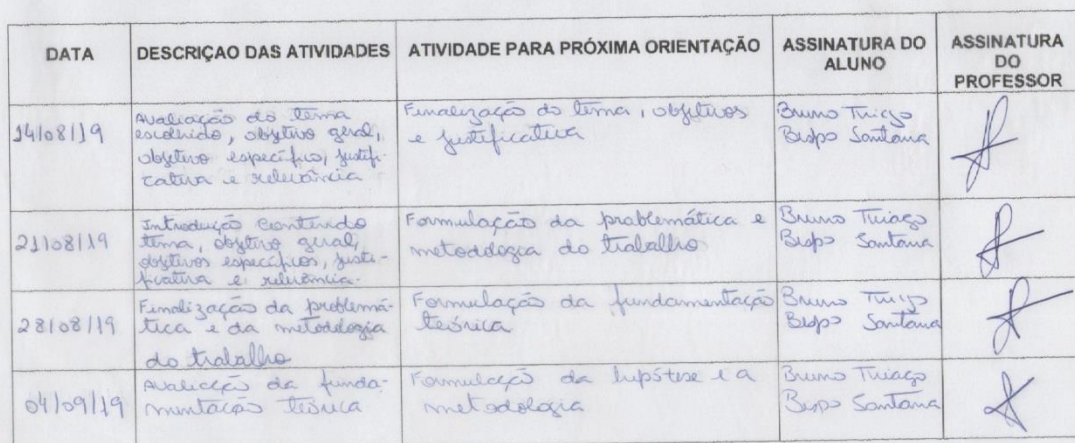 DATA
DESCRIÇAO DAS ATIVIDADES
ATIVIDADE PARA PRÓXIMA ORIENTAÇÃO
ASSINATURA DO
ALUNO
ASSINATURA
DO
PROFESSOR
14/08/19
Avaliação do tema
escolhido, objetivo geral,
objetivo específico, justifi-
cativa e relevância
Finalização do tema, objetivos
e justificativa
Bruno Thiago
Bispo Santana
21/08/19
Introdução contendo
tema, objetivo geral,
objetivos específicos, justi-
ficativa e relevância.
Formulação da problemática e
metodologia do trabalho
Bruno Thiago
Bispo Santana
28/08/19
Finalização da problemá-
tica e da metodologia
do trabalho
Formulação da fundamentação
teórica
Bruno Thiago
Bispo Santana
04/09/19
Avaliação da funda-
mentação teórica
Formulação da hipótese e a
metodologia
Bruno Thiago
Bispo Santana